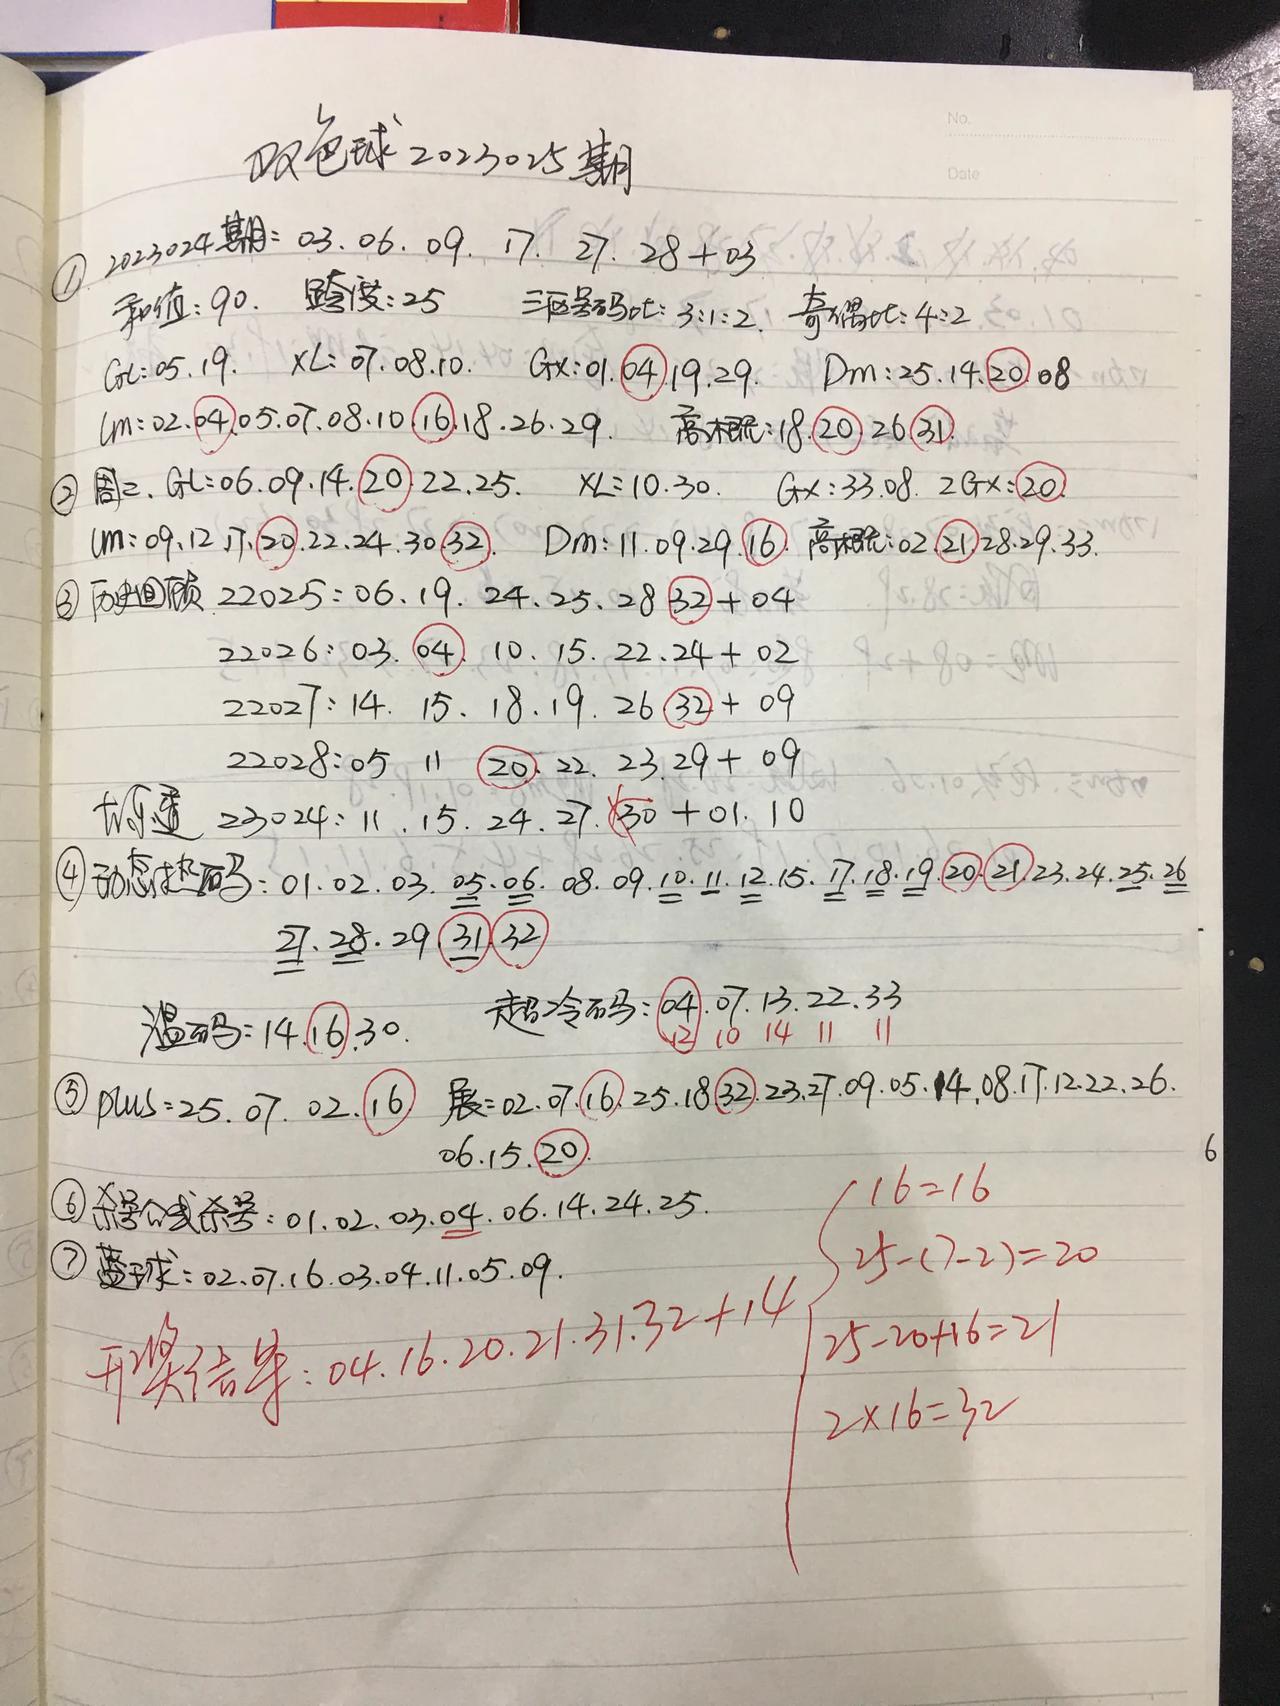 No.
Date
双色球2023025期
① 2023024期: 03.06.09.17.27.28+03
和值:90. 跨度:25 三区号码比:3:1:2. 奇偶比:4:2
GL:05.19. XL:07.08.10. GX:01.04.19.29. Dm:25.14.20.08
Lm:02.04.05.07.08.10.16.18.26.29. 高概:18.20.26.31.
② 周二. GL:06.09.14.20.22.25. XL:10.30. GX:33.08. 2GX:20.
Lm:09.12.17.20.22.24.30.32. Dm:11.09.29.16. 高概:02.21.28.29.33.
③ 历史回顾 22025:06.19.24.25.28.32+04
22026:03.04.10.15.22.24+02
22027:14.15.18.19.26.32+09
22028:05 11 20.22.23.29+09
大乐透 23024:11.15.24.27.30+01.10
④ 动态热码:01.02.03.05.06.08.09.10.11.12.15.17.18.19.20.21.23.24.25.26
27.28.29.31.32
温码:14.16.30. 超冷码:04.07.13.22.33
12 10 14 11 11
⑤ plus=25.07.02.16 展=02.07.16.25.18.32.23.27.09.05.14.08.17.12.22.26.
06.15.20.
6
⑥ 杀号公式杀号:01.02.03.04.06.14.24.25.
⑦ 蓝球:02.07.16.03.04.11.05.09.
开奖结果:04.16.20.21.31.32+14
16=16
25-(7-2)=20
25-20+16=21
2×16=32